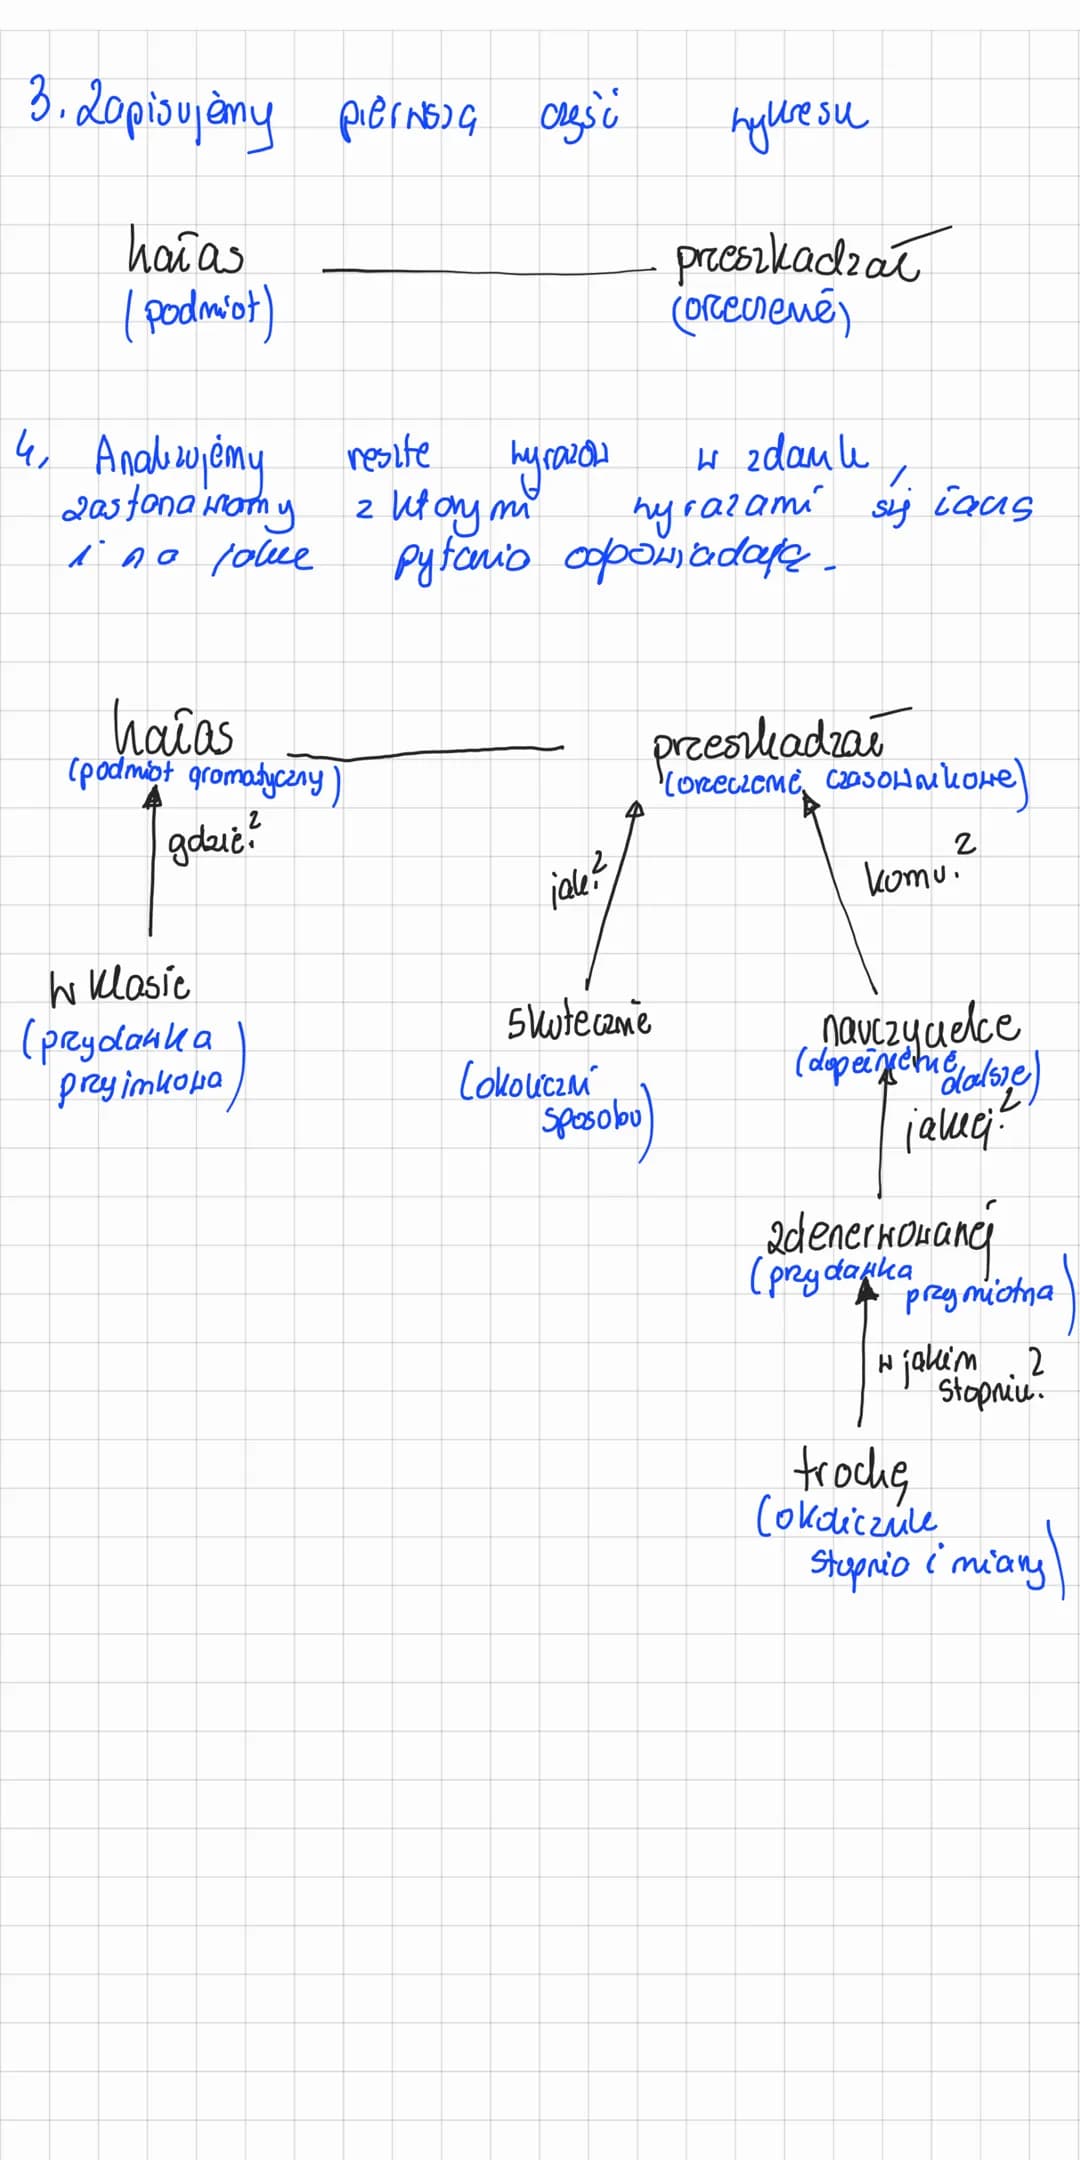 3. Zapisujemy pierwszą część wykresu
hałas
przeszkadzał
(podmiot)
(orzeczenie)
4. Analizujemy resztę wyrazów w zdaniu,
zastanawiamy z którymi wyrazami się łączą
i na jakie pytania odpowiadają.
hałas
przeszkadzał
(podmiot gramatyczny)
(orzeczenie czasownikowe)
gdzie?
jak?
komu?
w klasie
skutecznie
nauczycielce
(przydawka
przyimkowa)
(okoliczni
sposobu)
(dopełnienie
dalsze)
jakiej?
zdenerwowanej
(przydawka
przymiotna)
w jakim
stopniu?
trochę
(okolicznik
stopnia i miary)